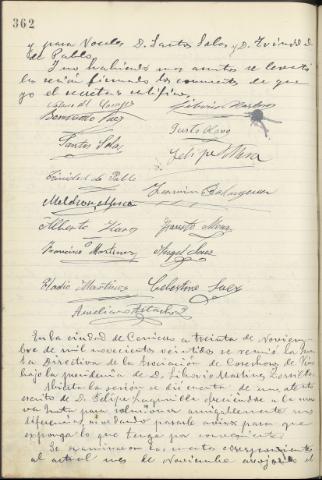 362
y para Vocales D. Santos Salas y D. Trinidad
de Pablo.
Y no habiendo mas asuntos se levantó
la sesión firmando los concurrentes de que
yo el secretario certifico.
Liborio Martinez
Bernardo Saez
Justo
Santos Salas
Felipe
Trinidad de Pablo
Fermin
Alberto
Fausto
Francisco Martinez
Angel Saez
Eladio Martinez
Celestino Saez
Aureliano
En la ciudad de Cenicero a treinta de Noviem-
bre de mil novecientos veintidos se reunió la Jun
ta Directiva de la Asociación de Cosecheros de Vino
bajo la presidencia de D. Liborio Martinez
Abierta la sesión se dió cuenta de un atento
escrito de D. Felipe ofreciendose a la nue
va Junta para solucionar amigablemente sus
diferencias, acordando pasarle aviso para que
exponga lo que tenga por conveniente.
Se examinaron las cuentas correspondientes
al actual mes de Noviembre